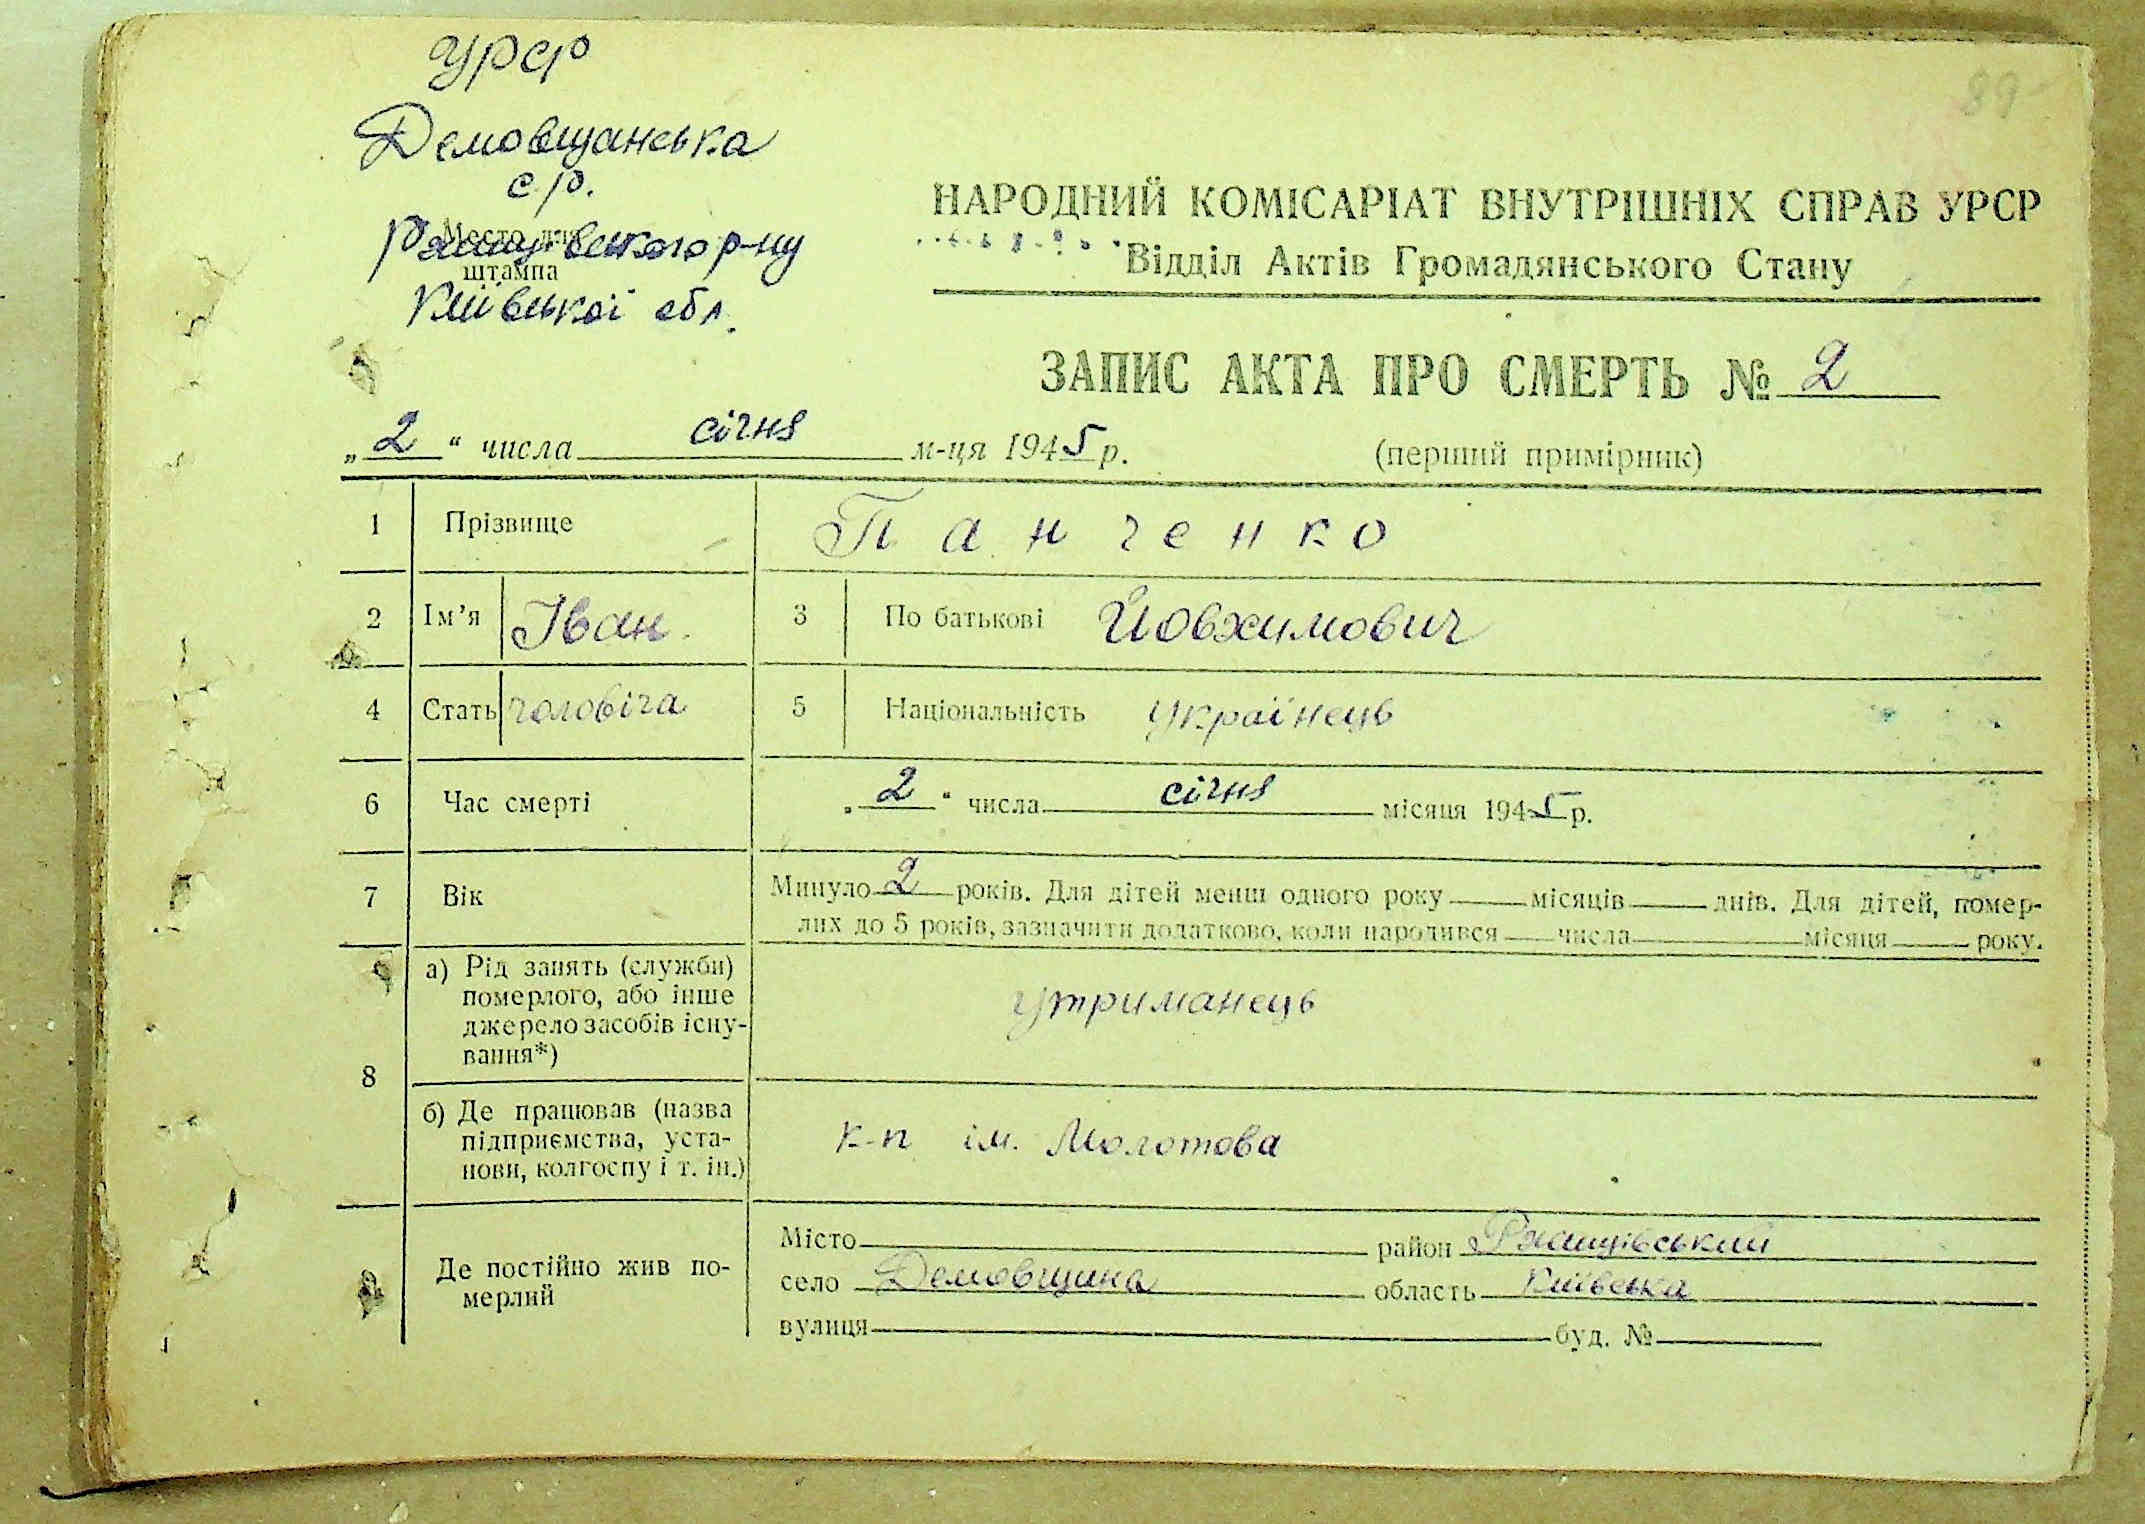 УРСР
89
Демовщанська
с.р.
Ржищівського р-ну
Место для
штампа
Київської обл.
НАРОДНИЙ КОМІСАРІАТ ВНУТРІШНІХ СПРАВ УРСР
Відділ Актів Громадянського Стану
ЗАПИС АКТА ПРО СМЕРТЬ № 2
„2“ числа січня м-ця 1945 р. (перший примірник)
1 Прізвище Панченко
2 Ім’я Іван 3 По батькові Йовхимович
4 Стать чоловіча 5 Національність Українець
6 Час смерті „2“ числа січня місяця 1945 р.
7 Вік Минуло 2 років. Для дітей менш одного року місяців днів. Для дітей, помер-
лих до 5 років, зазначити додатково, коли народився числа місяця року.
8 а) Рід занять (служби)
померлого, або інше
джерело засобів існу-
вання*) утриманець
б) Де працював (назва
підприємства, уста-
нови, колгоспу і т. ін.) к-п ім. Молотова
Де постійно жив по-
мерлий
Місто район Ржищівський
село Демовщина область Київська
вулиця буд. №